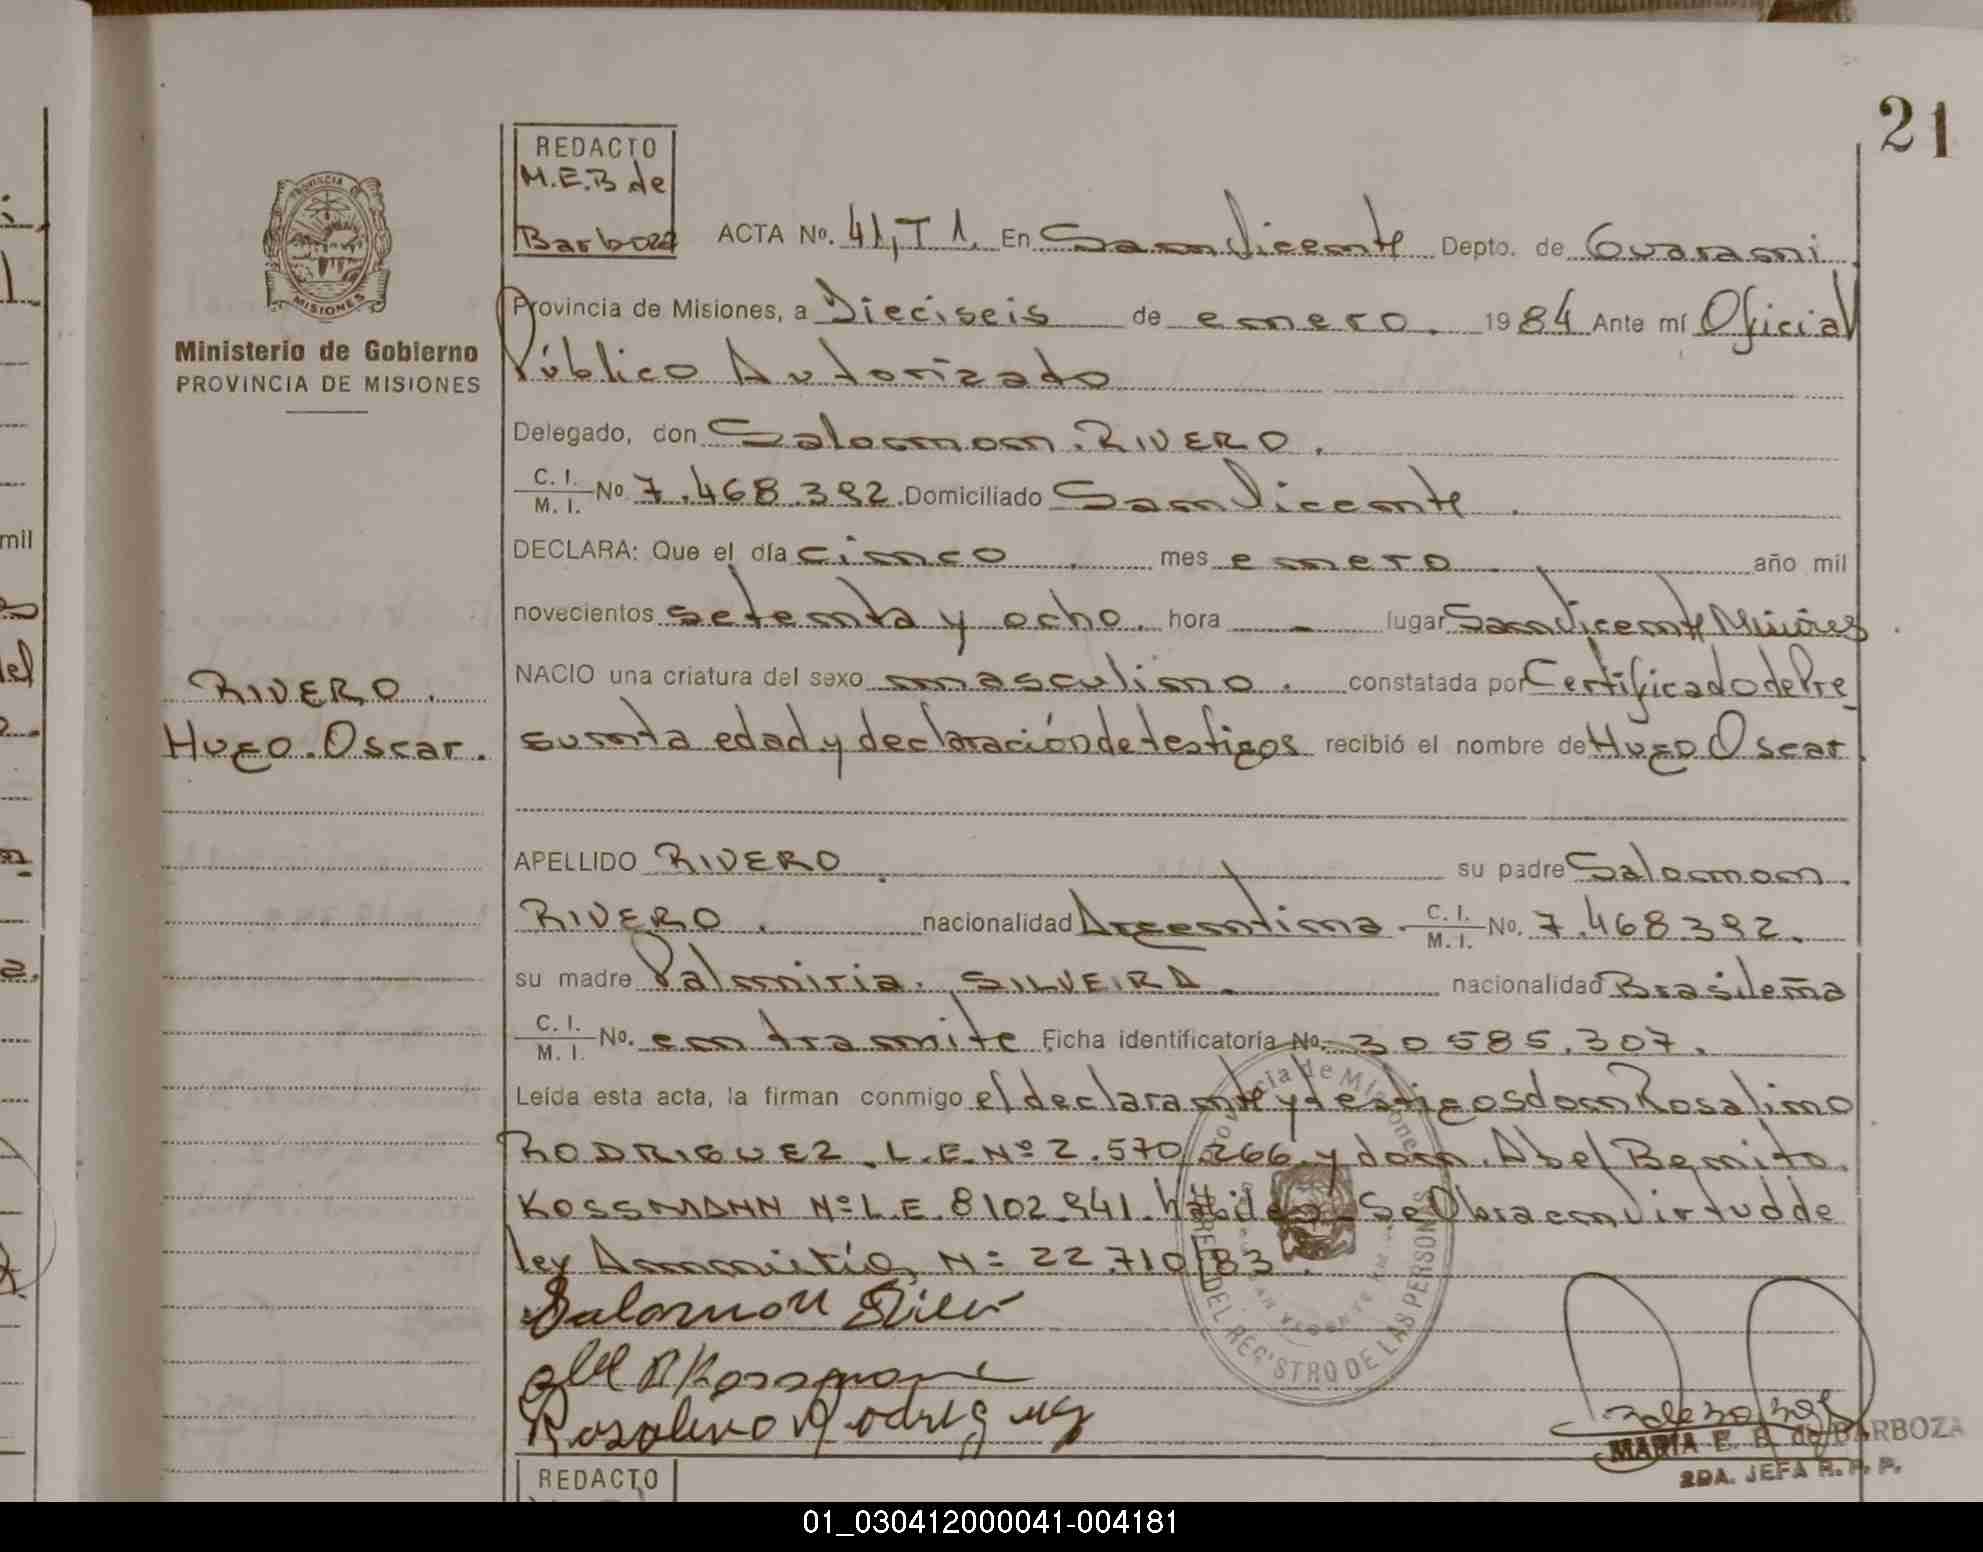 21
REDACTO
M.E.B de
Barboza
PROVINCIA DE
MISIONES
Ministerio de Gobierno
PROVINCIA DE MISIONES
ACTA No. 41, T 1. En San Vicente Depto. de Guarani
Provincia de Misiones, a Dieciseis de enero. 1984 Ante mí Oficial
Público Autorizado
Delegado, don Salomon RIVERO.
C. I.
M. I. No. 7.468.392. Domiciliado San Vicente.
DECLARA: Que el día cinco mes enero año mil
novecientos setenta y ocho. hora - lugar San Vicente Misiones
NACIO una criatura del sexo masculino. constatada por Certificado de Pre
RIVERO.
Hugo Oscar.
sunta edad y declaración de testigos recibió el nombre de Hugo Oscar
APELLIDO RIVERO su padre Salomon
RIVERO. nacionalidad Argentina C. I.
M. I. No. 7.468.392.
su madre Palmiria. SILVEIRA. nacionalidad Brasileña
C. I.
M. I. No. en tramite Ficha identificatoria No. 30585.307.
Leída esta acta, la firman conmigo el declarante y testigos don Rosalino
RODRIGUEZ. L.E. Nº 2.570.266 y don. Abel Benito.
KOSSMANN Nº L.E. 8102.941. habiles Se Obra en virtud de
ley Amnistía, Nº 22.710/83.
Provincia de Misiones
DEL REGISTRO DE LAS PERSONAS
Salomon Rivero
Abel B Kossmann
Rosalino Rodriguez
MARIA E. B. de BARBOZA
2DA. JEFA R. P. P.
REDACTO
01_030412000041-004181